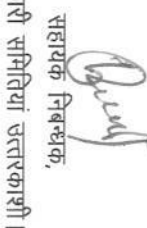 सहायक निबन्धक,
री समितियां उत्तरकाशी।